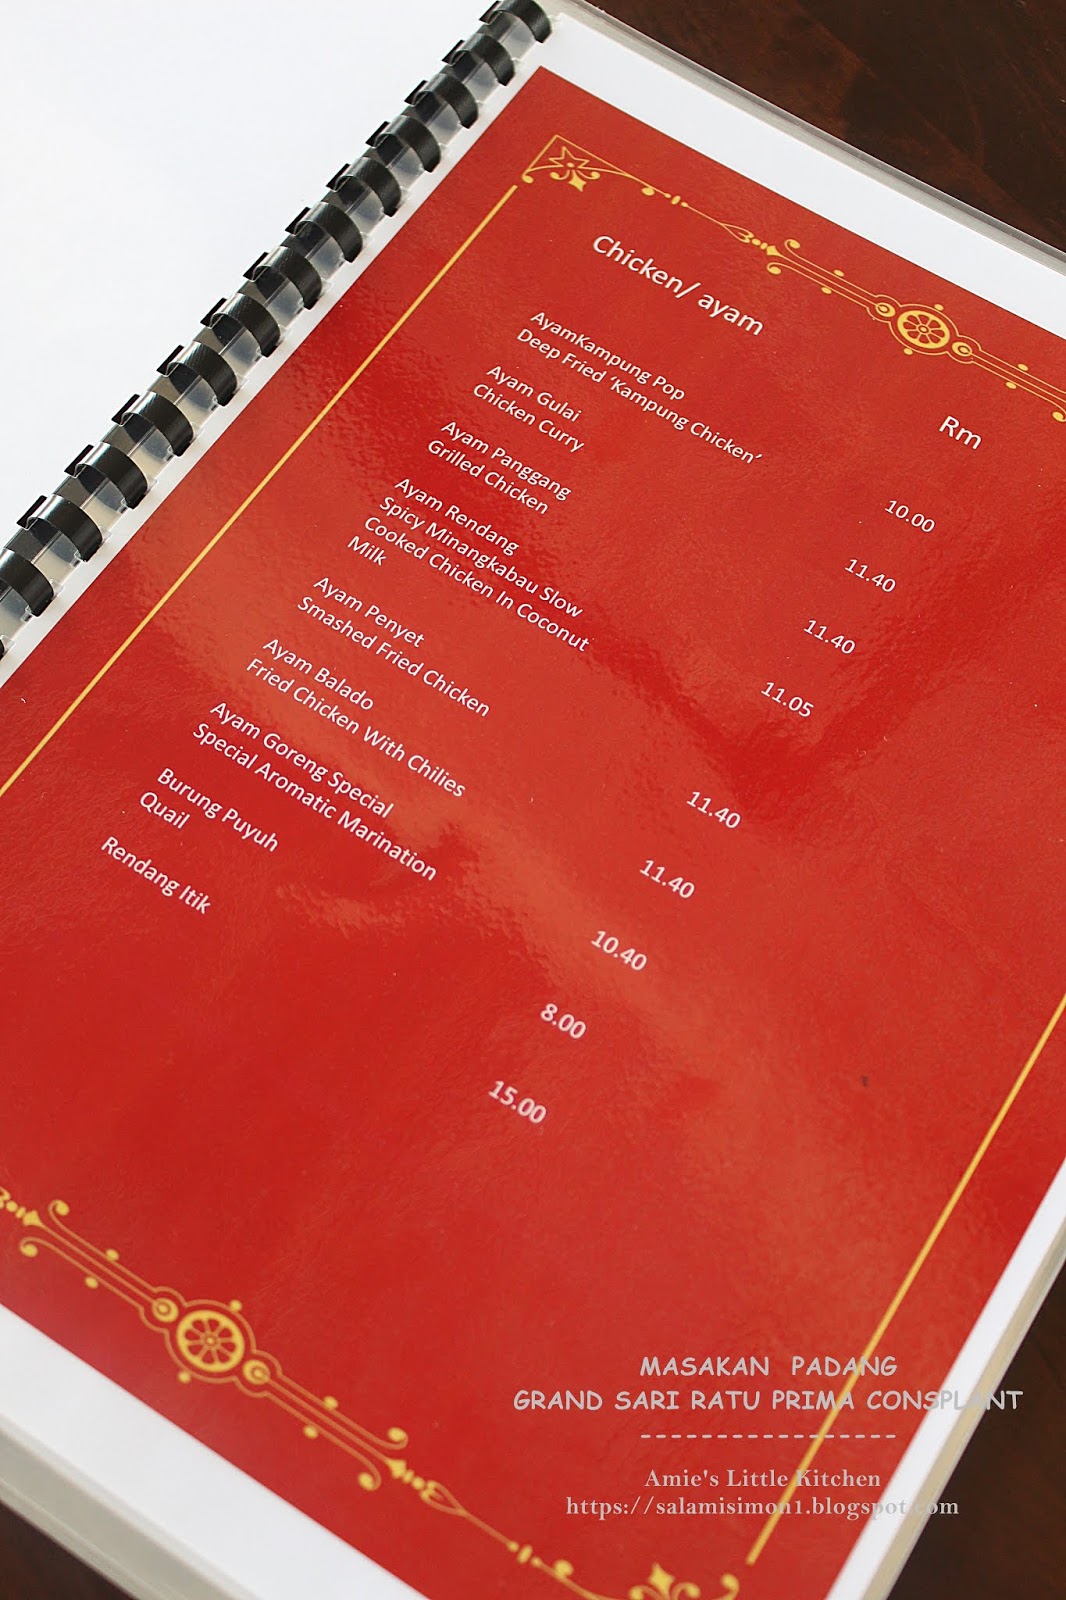 Chicken/ ayam
Rm
AyamKampung Pop
Deep Fried ‘Kampung Chicken’
10.00
Ayam Gulai
Chicken Curry
11.40
Ayam Panggang
Grilled Chicken
11.40
Ayam Rendang
Spicy Minangkabau Slow
Cooked Chicken In Coconut
Milk
11.05
Ayam Penyet
Smashed Fried Chicken
11.40
Ayam Balado
Fried Chicken With Chilies
11.40
Ayam Goreng Special
Special Aromatic Marination
10.40
Burung Puyuh
Quail
8.00
Rendang Itik
15.00
MASAKAN PADANG
GRAND SARI RATU PRIMA CONSPLANT
-----------------
Amie's Little Kitchen
https://salamisimon1.blogspot.com